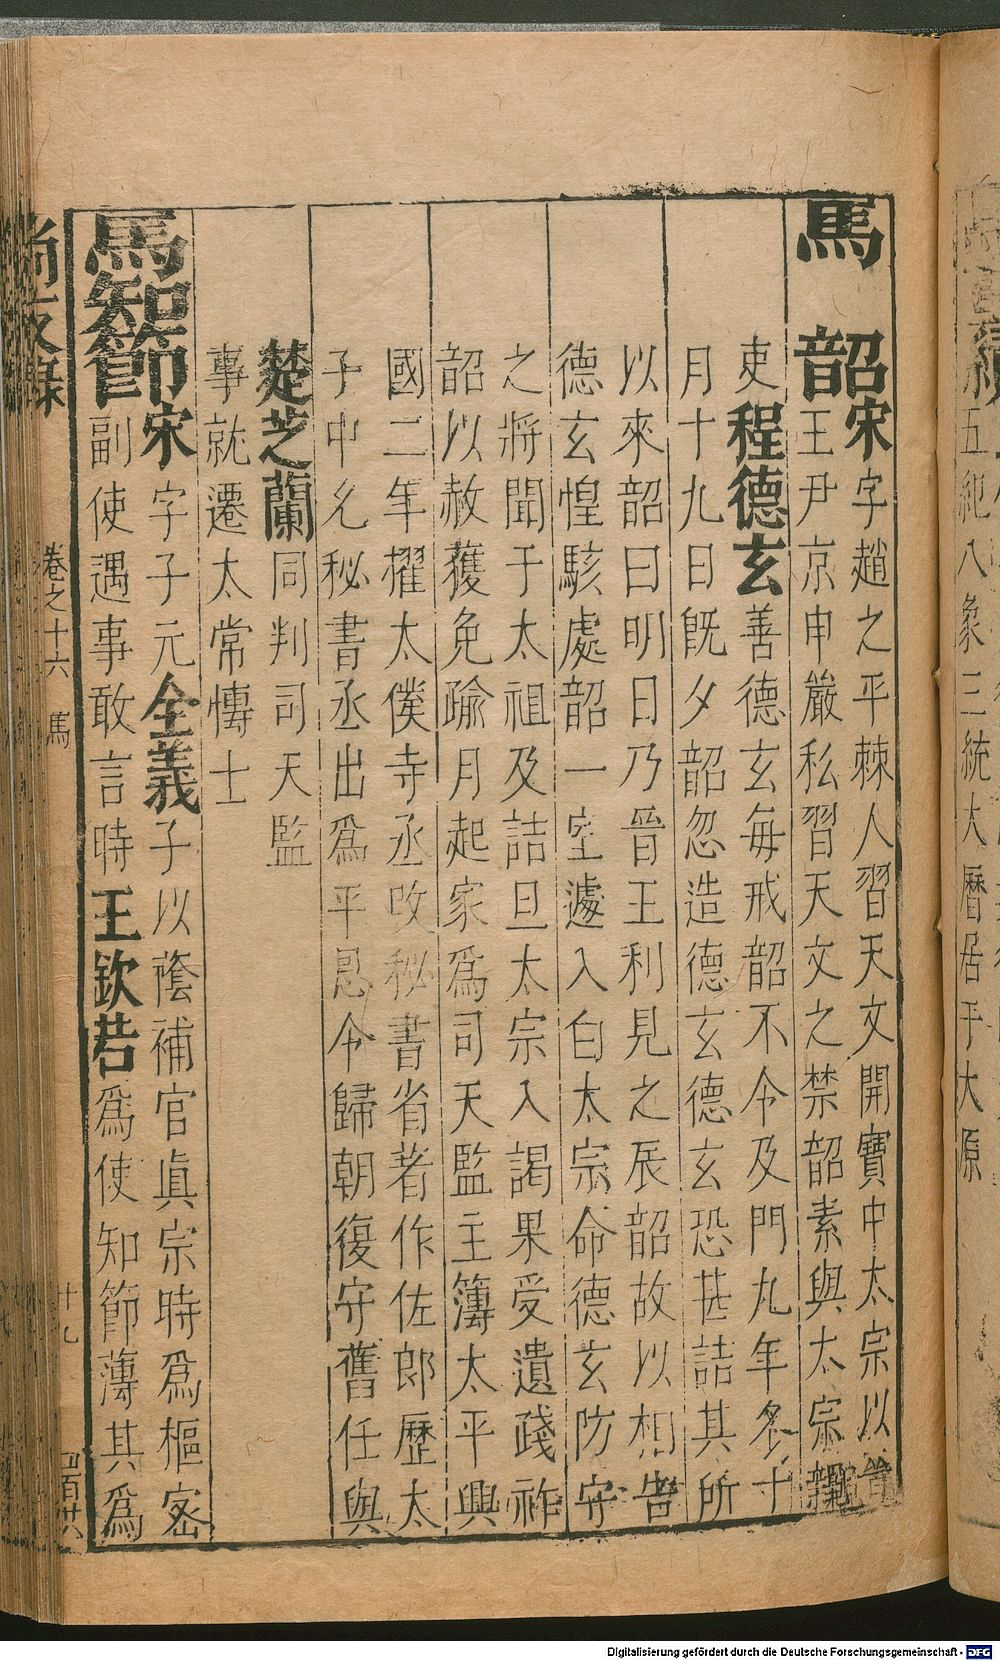 馬韶宋字趙之平棘人習天文開寶中太宗以晉
王尹京申嚴私習天文之禁韶素與太宗親
吏程德玄善德玄每戒韶不令及門九年冬十
月十九日旣夕韶忽造德玄德玄恐甚詰其所
以來韶曰明日乃晉王利見之辰韶故以相告
德玄惶駭處韶一室遽入白太宗命德玄防守
之將聞于太祖及詰旦太宗入謁果受遺踐祚
韶以赦獲免踰月起家爲司天監主簿太平興
國二年擢太僕寺丞改秘書省著作佐郎歷太
子中允秘書丞出爲平恩令歸朝復守舊任與
楚芝蘭同判司天監
事就遷太常慱士
馬智節宋字子元全義子以蔭補官眞宗時爲樞密
副使遇事敢言時王欽若爲使知節薄其爲
尚友錄 卷之十六 馬 十九 四百廿六
五紀八象三統大曆居于太原
Digitalisierung gefördert durch die Deutsche Forschungsgemeinschaft - DFG